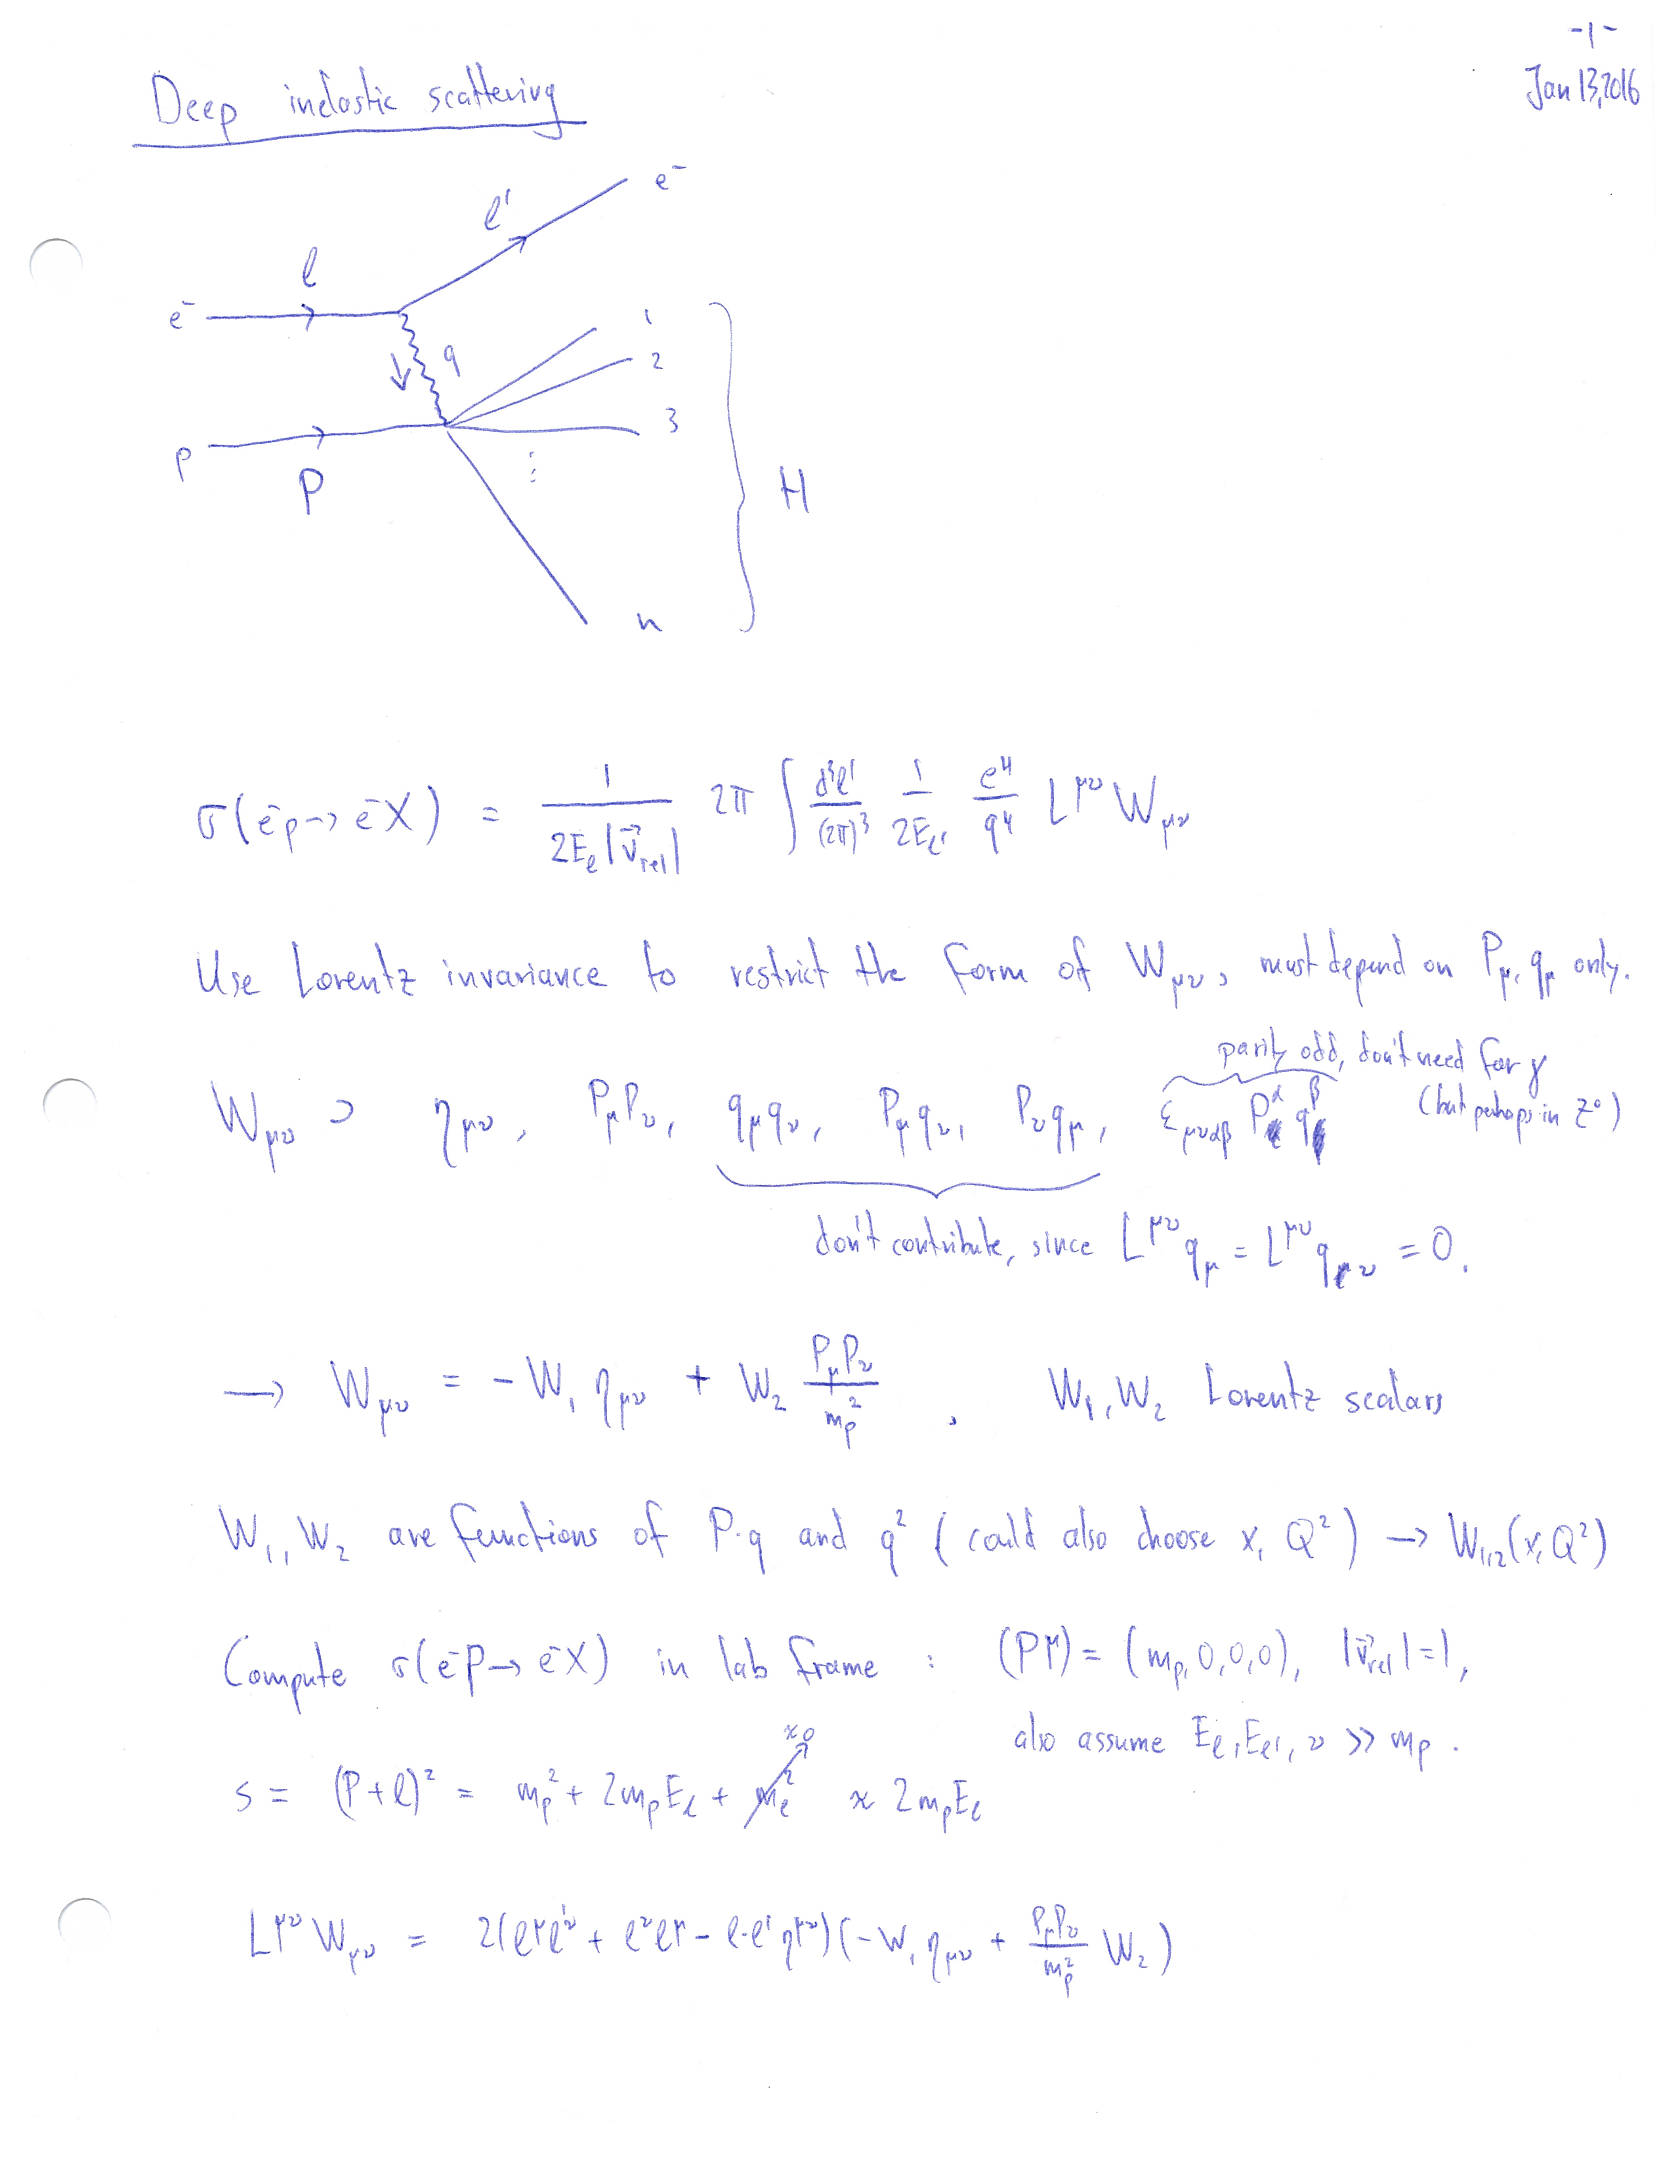 -1-
Jan 13, 2016
Deep inelastic scattering
e⁻
l'
l
e⁻
q
1
2
3
p
P
⋮
H
n
σ(e⁻p→e⁻X) = 1/(2E_l |v⃗_rel|) 2π ∫ d³l'/(2π)³ 1/(2E_l') e⁴/q⁴ L^μν W_μν
Use Lorentz invariance to restrict the form of W_μν, must depend on P_μ, q_μ only.
parity odd, don't need for γ
W_μν ⊃ η_μν, P_μP_ν, q_μq_ν, P_μq_ν, P_νq_μ, ε_μναβ P^α q^β (but perhaps in Z⁰)
don't contribute, since L^μν q_μ = L^μν q_ν = 0.
→ W_μν = -W₁ η_μν + W₂ P_μP_ν/m_p², W₁, W₂ Lorentz scalars
W₁, W₂ are functions of P·q and q² (could also choose x, Q²) → W₁,₂(x,Q²)
Compute σ(e⁻p→e⁻X) in lab frame : (P^μ) = (m_p,0,0,0), |v⃗_rel|=1,
also assume E_l, E_l', ν >> m_p.
≈0
s = (P+l)² = m_p² + 2m_pE_l + m_e² ≈ 2m_pE_l
L^μν W_μν = 2(l^μl'^ν + l^νl^μ - l·l' η^μν)(-W₁ η_μν + P_μP_ν/m_p² W₂)